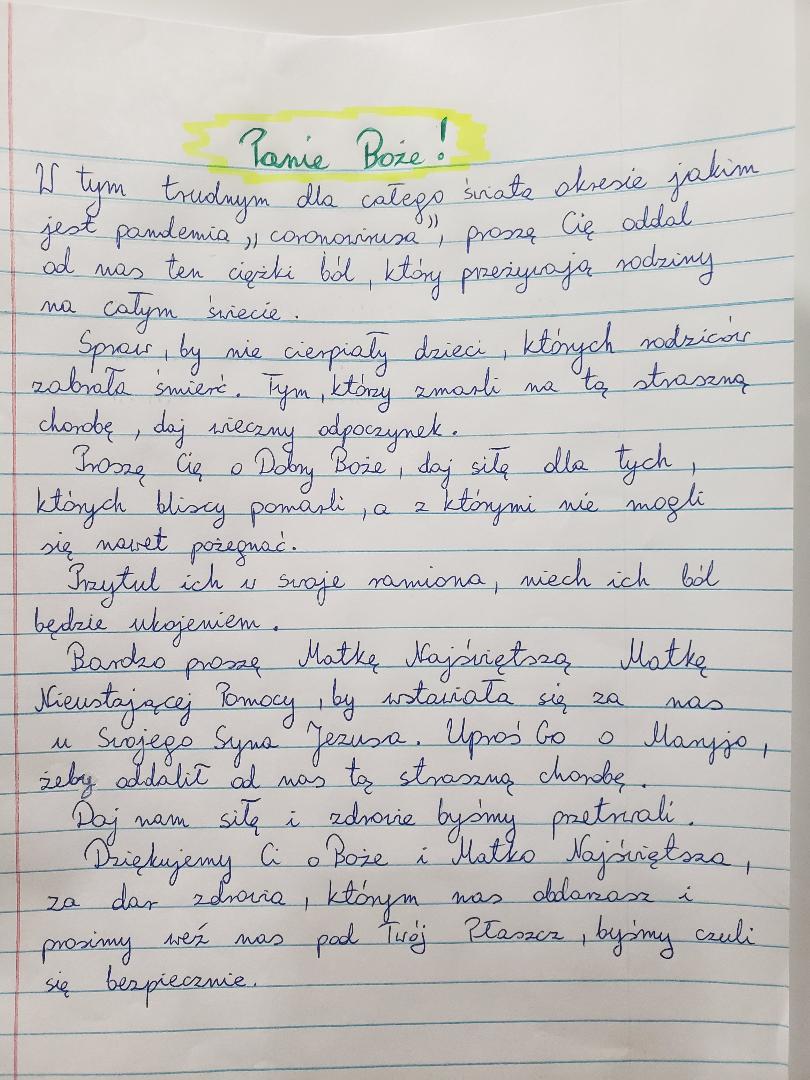 Panie Boże!
W tym trudnym dla całego świata okresie jakim
jest pandemia „coronowirusa", proszę Cię oddal
od nas ten ciężki ból, który przeżywają rodziny
na całym świecie.
Spraw, by nie cierpiały dzieci, których rodziców
zabrała śmierć. Tym, którzy zmarli na tą straszną
chorobę, daj wieczny odpoczynek.
Proszę Cię o Dobry Boże, daj siłę dla tych,
których bliscy pomarli, a z którymi nie mogli
się nawet pożegnać.
Przytul ich w swoje ramiona, niech ich ból
będzie ukojeniem.
Bardzo proszę Matkę Najświętszą Matkę
Nieustającej Pomocy, by wstawiała się za nas
u Swojego Syna Jezusa. Uproś Go o Maryjo,
żeby oddalił od nas tą straszną chorobę.
Daj nam siłę i zdrowie byśmy przetrwali.
Dziękujemy Ci o Boże i Matko Najświętsza,
za dar zdrowia, którym nas obdarzasz i
prosimy weź nas pod Twój Płaszcz, byśmy czuli
się bezpiecznie.